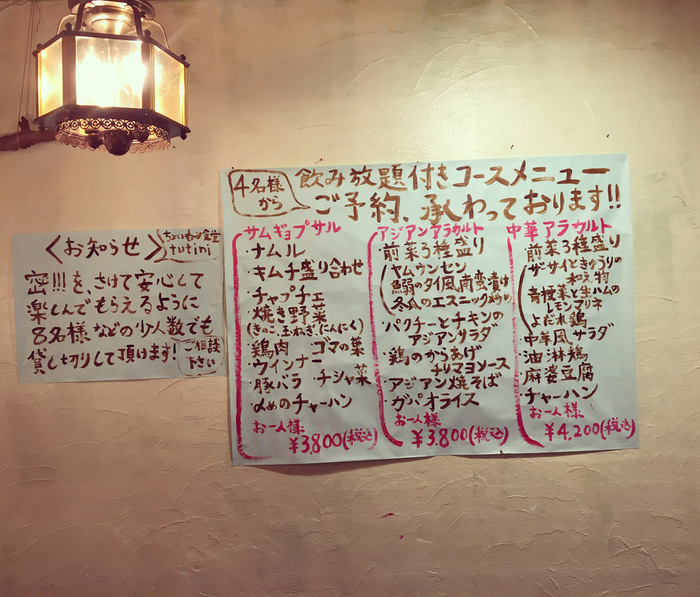 〈お知らせ〉
ちょいわる食堂
tutini
密!!!を、さけて安心して
楽しんでもらえるように
8名様などの少人数でも
貸し切りして頂けます!
ご相談
下さい
4名様
から
飲み放題付きコースメニュー
ご予約、承わっております!!
サムギョプサル
・ナムル
・キムチ盛り合わせ
・チャプチェ
・焼き野菜
(きのこ、玉ねぎ、にんにく)
・鶏肉 ・ゴマの葉
・ウインナー
・豚バラ ・チシャ菜
・〆めのチャーハン
お一人様
¥3,800(税込)
アジアンアラカルト
・前菜3種盛り
ヤムウンセン
鰯のタイ風南蛮漬け
冬瓜のエスニック炒め
・パクチーとチキンの
アジアンサラダ
・鶏のからあげ
チリマヨソース
・アジアン焼そば
・ガパオライス
お一人様
¥3,800(税込)
中華アラカルト
・前菜3種盛り
ザーサイときゅうりの
和え物
青梗菜と生ハムの
レモンマリネ
よだれ鶏
・中華風サラダ
・油淋鶏
・麻婆豆腐
・チャーハン
お一人様
¥4,200(税込)